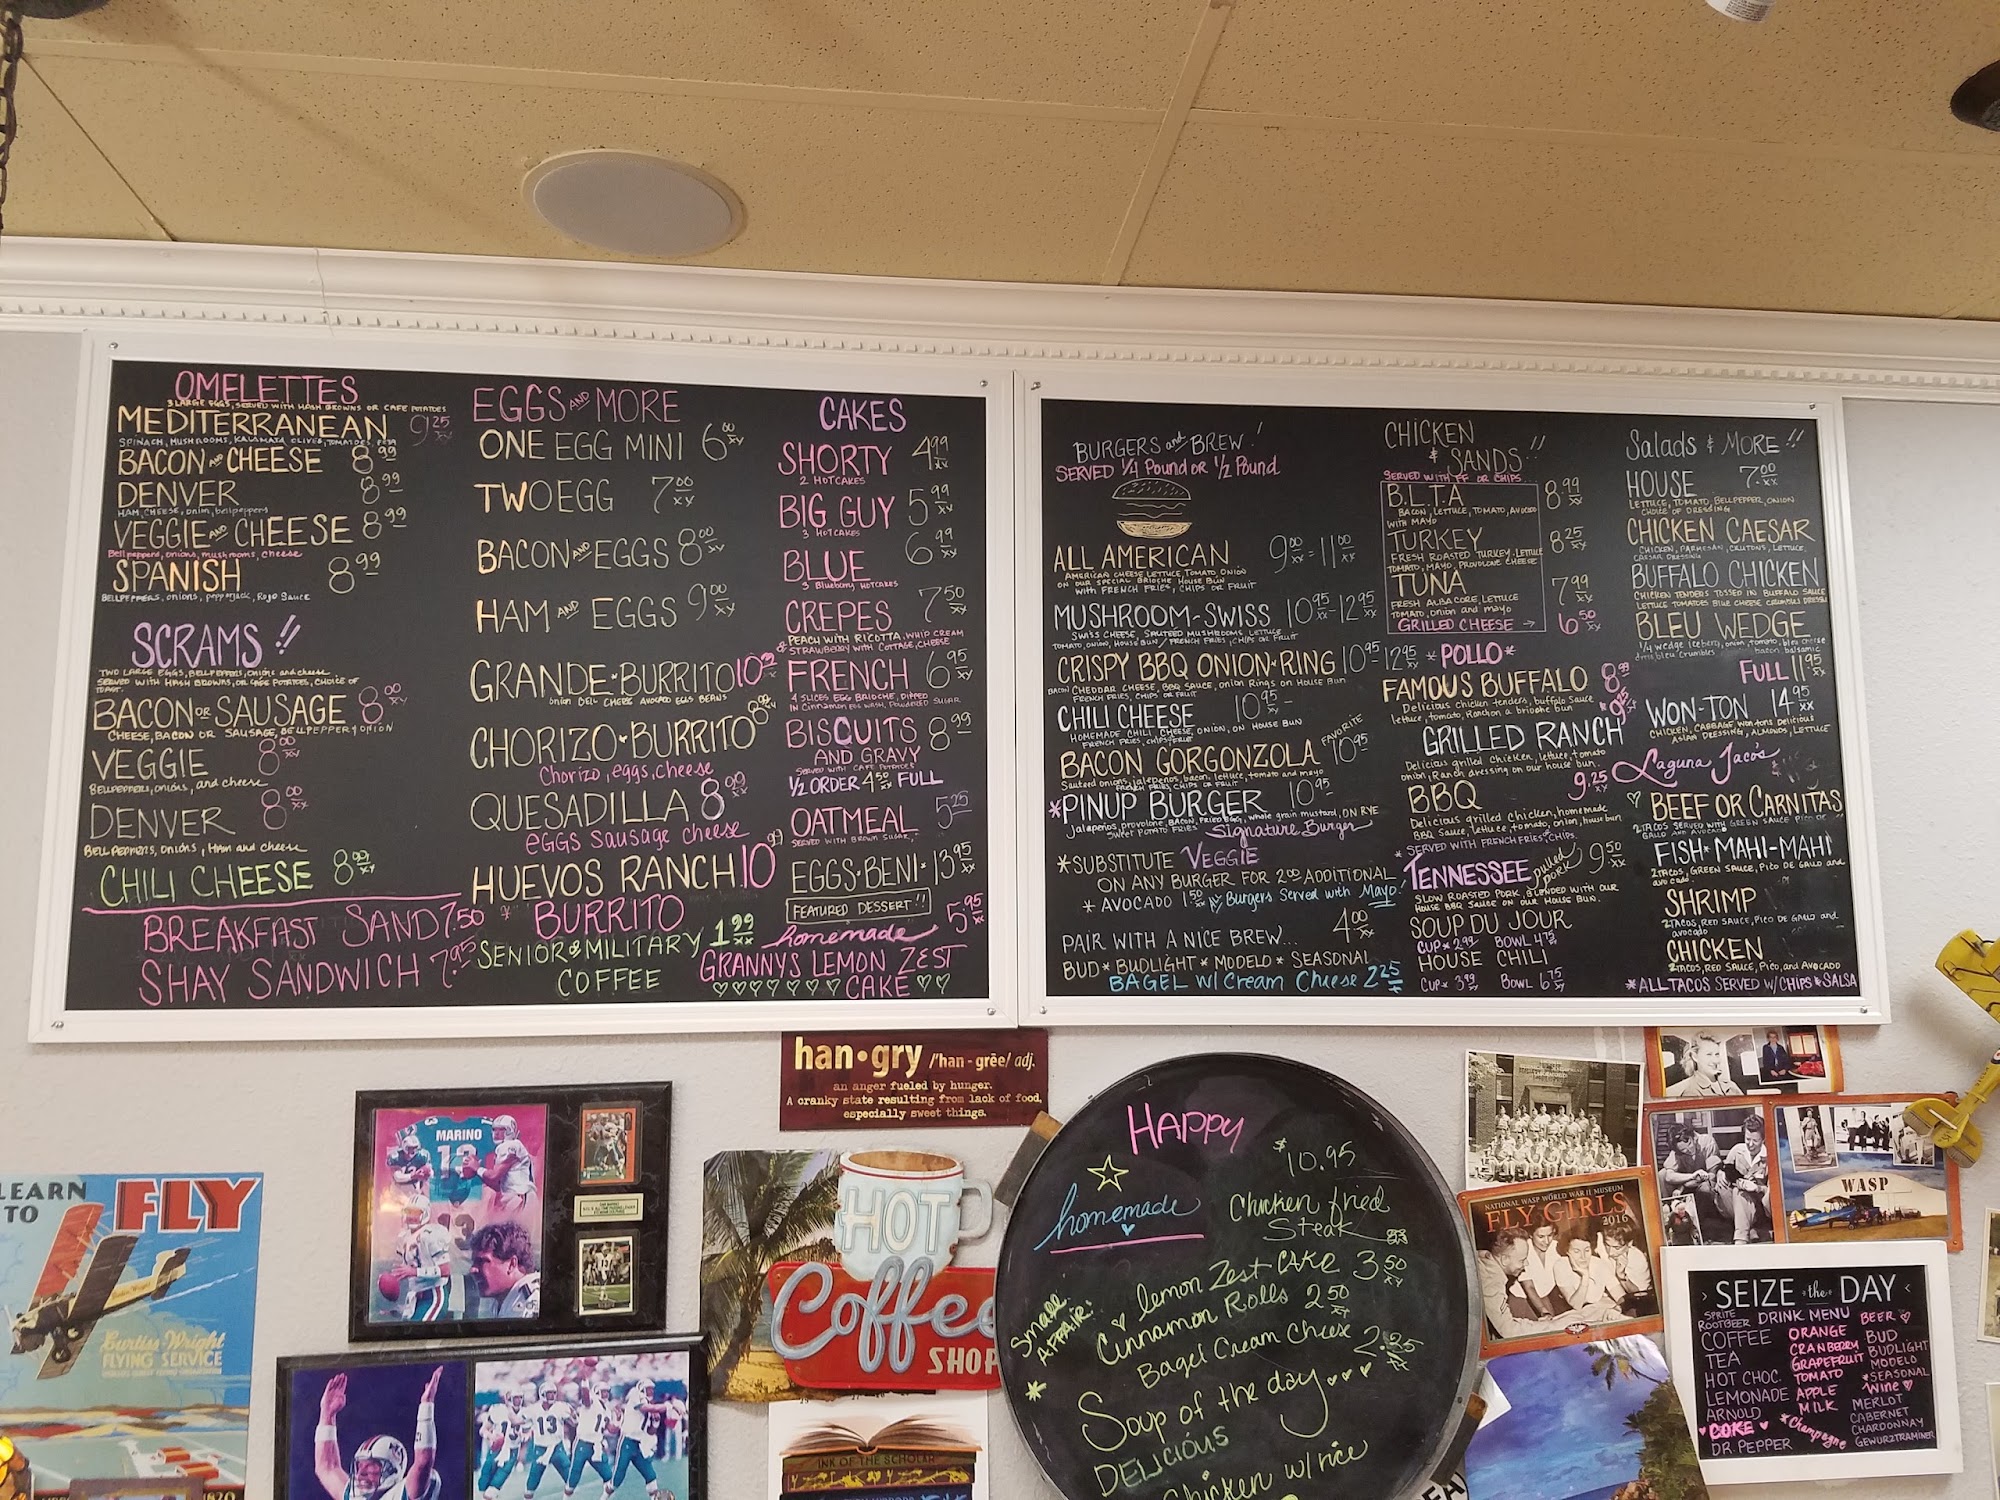 OMELETTES
3 LARGE EGGS, SERVED WITH HASH BROWNS OR CAFE POTATOES
MEDITERRANEAN 9 25
SPINACH, MUSHROOMS, KALAMATA OLIVES, TOMATOES, FETA
BACON AND CHEESE 8 99
DENVER 8 99
HAM, CHEESE, onion, bellpeppers
VEGGIE AND CHEESE 8 99
Bellpeppers, onions, mushrooms, cheese
SPANISH 8 99
BELLPEPPERS, onions, pepperjack, Rojo Sauce
SCRAMS!!
TWO LARGE EGGS, BELLPEPPERS, ONIONS and cheese
SERVED WITH HASH BROWNS, OR CAFE POTATOES, CHOICE OF
TOAST.
BACON OR SAUSAGE 8 00
CHEESE, BACON OR SAUSAGE, BELLPEPPERY ONION
VEGGIE 8 00
BELLPEPPERS, ONIONS, and cheese
DENVER 8 00
BELLPEPPERS, ONIONS, HAM and cheese
CHILI CHEESE 8 00
BREAKFAST SAND 7.50
SHAY SANDWICH 7.95
EGGS AND MORE
ONE EGG MINI 6 00
TWO EGG 7 00
BACON AND EGGS 8 00
HAM AND EGGS 9 00
GRANDE·BURRITO 10
onion BELL CHEESE AVOCADO EGGS BEANS
CHORIZO·BURRITO 8 99
Chorizo, eggs, cheese
QUESADILLA 8 99
eggs Sausage cheese
HUEVOS RANCH 10 99
* BURRITO
SENIOR & MILITARY 1 99
COFFEE
CAKES
SHORTY 4 99
2 HOTCAKES
BIG GUY 5 99
3 HOTCAKES
BLUE 6 99
3 Blueberry HOTCAKES
CREPES 7 50
PEACH WITH RICOTTA, WHIP CREAM
& STRAWBERRY WITH COTTAGE, CHEESE
FRENCH 6 95
4 SLICES EGG BRIOCHE, DIPPED
IN Cinnamon EGG WASH, POWDERED SUGAR
BISCUITS 8 99
AND GRAVY
SERVED WITH CAFE POTATOES
1/2 ORDER 4 50 FULL
OATMEAL 5 25
SERVED WITH BROWN SUGAR
EGGS·BENI· 13 95
FEATURED DESSERT!!
homemade 5 95
GRANNYS LEMON ZEST
CAKE
BURGERS and BREW!
SERVED 1/4 Pound OR 1/2 Pound
ALL AMERICAN 9 00 - 11 00
AMERICAN CHEESE LETTUCE TOMATO ONION
ON OUR SPECIAL BRIOCHE HOUSE BUN
WITH FRENCH FRIES, CHIPS OR FRUIT
MUSHROOM-SWISS 10 95 - 12 95
SWISS CHEESE, SAUTEED MUSHROOMS LETTUCE
TOMATO, ONION, HOUSE BUN / FRENCH FRIES, CHIPS OR FRUIT
CRISPY BBQ ONION·RING 10 95 12 95
BACON CHEDDAR CHEESE, BBQ SAUCE, onion Rings on HOUSE BUN
FRENCH FRIES, CHIPS OR FRUIT
CHILI CHEESE 10 95
HOMEMADE CHILI, CHEESE, ONION, ON HOUSE BUN
FRENCH FRIES, CHIPS, FRUIT
BACON GORGONZOLA FAVORITE 10 95
Sauteed onions, jalepeños, bacon, lettuce, tomato and mayo
FRENCH FRIES, CHIPS OR FRUIT
*PINUP BURGER 10 95
jalapeños, provolone, BACON, FRIED EGG, whole grain mustard, ON RYE
SWEET POTATO FRIES Signature Burger
*SUBSTITUTE VEGGIE
ON ANY BURGER FOR 2 00 ADDITIONAL
* AVOCADO 1 50 Burgers Served with Mayo!
PAIR WITH A NICE BREW... 4 00
BUD * BUDLIGHT * MODELO * SEASONAL
BAGEL W/ Cream Cheese 2 25
CHICKEN
& SANDS!!
SERVED WITH FF OR CHIPS
B.L.T.A 8.99
BACON, LETTUCE, TOMATO, AVOCADO
WITH MAYO
TURKEY 8 25
FRESH ROASTED TURKEY, LETTUCE
TOMATO, MAYO, PROVOLONE CHEESE
TUNA 7 99
FRESH ALBACORE, LETTUCE
TOMATO, ONION and mayo
GRILLED CHEESE → 6 50
*POLLO*
FAMOUS BUFFALO 8 99
Delicious chicken tenders, buffalo Sauce
lettuce, tomato, Ranch on a brioche bun
GRILLED RANCH
Delicious grilled chicken, lettuce, tomato
onion, Ranch dressing on our house bun.
BBQ 9.25
Delicious grilled chicken, homemade
BBQ Sauce, lettuce, tomato, onion, house bun
* SERVED WITH FRENCH FRIES, CHIPS.
TENNESSEE pulled pork 9 50
SLOW ROASTED PORK, BLENDED WITH OUR
HOUSE BBQ SAUCE ON OUR HOUSE BUN.
SOUP DU JOUR
CUP * 2 99 BOWL 4 75
HOUSE CHILI
CUP * 3 99 BOWL 6 75
Salads & MORE!!
HOUSE 7.00
LETTUCE, TOMATO, BELLPEPPER, ONION
CHOICE OF DRESSING
CHICKEN CAESAR
CHICKEN, PARMESAN, CRUTONS, LETTUCE,
CAESAR DRESSING
BUFFALO CHICKEN
CHICKEN TENDERS TOSSED IN BUFFALO SAUCE
LETTUCE TOMATOES BLUE CHEESE CRUMBLES
BLEU WEDGE
1/4 wedge iceberg, onion, tomato, bleu cheese
bacon balsamic
FULL 11 95
WON-TON 14 95
CHICKEN, CABBAGE, wontons Delicious
ASIAN DRESSING, ALMONDS, LETTUCE
Laguna Taco's
BEEF OR CARNITAS
2 TACOS SERVED WITH GREEN SAUCE PICO DE
GALLO AND AVOCADO
FISH * MAHI-MAHI
2 TACOS, GREEN SAUCE, PICO DE GALLO and
avocado
SHRIMP
2 TACOS, RED SAUCE, PICO DE GALLO and
avocado
CHICKEN
2 TACOS, RED SAUCE, Pico, and AVOCADO
*ALL TACOS SERVED W/ CHIPS * SALSA
han•gry /'han - grēe/ adj.
an anger fueled by hunger.
A cranky state resulting from lack of food,
especially sweet things.
LEARN
TO FLY
Curtiss-Wright
FLYING SERVICE
MARINO
13
HOT
Coffee
SHOP
INK OF THE SCHOLAR
HAPPY
homemade
$10.95
Chicken fried
Steak
Small AFFAIR!
lemon Zest CAKE 3 50
Cinnamon Rolls 2 50
Bagel Cream Cheese 2.25
Soup of the day...
DELICIOUS
Chicken w/ rice
NATIONAL WASP WORLD WAR II MUSEUM
FLY GIRLS
2016
WASP
SEIZE the DAY
DRINK MENU
SPRITE
ROOTBEER
COFFEE
TEA
HOT CHOC.
LEMONADE
ARNOLD
COKE
DR. PEPPER
ORANGE
CRANBERRY
GRAPEFRUIT
TOMATO
APPLE
MILK
*Champagne
BEER
BUD
BUDLIGHT
MODELO
*SEASONAL
Wine
MERLOT
CABERNET
CHARDONNAY
GEWURZTRAMINER